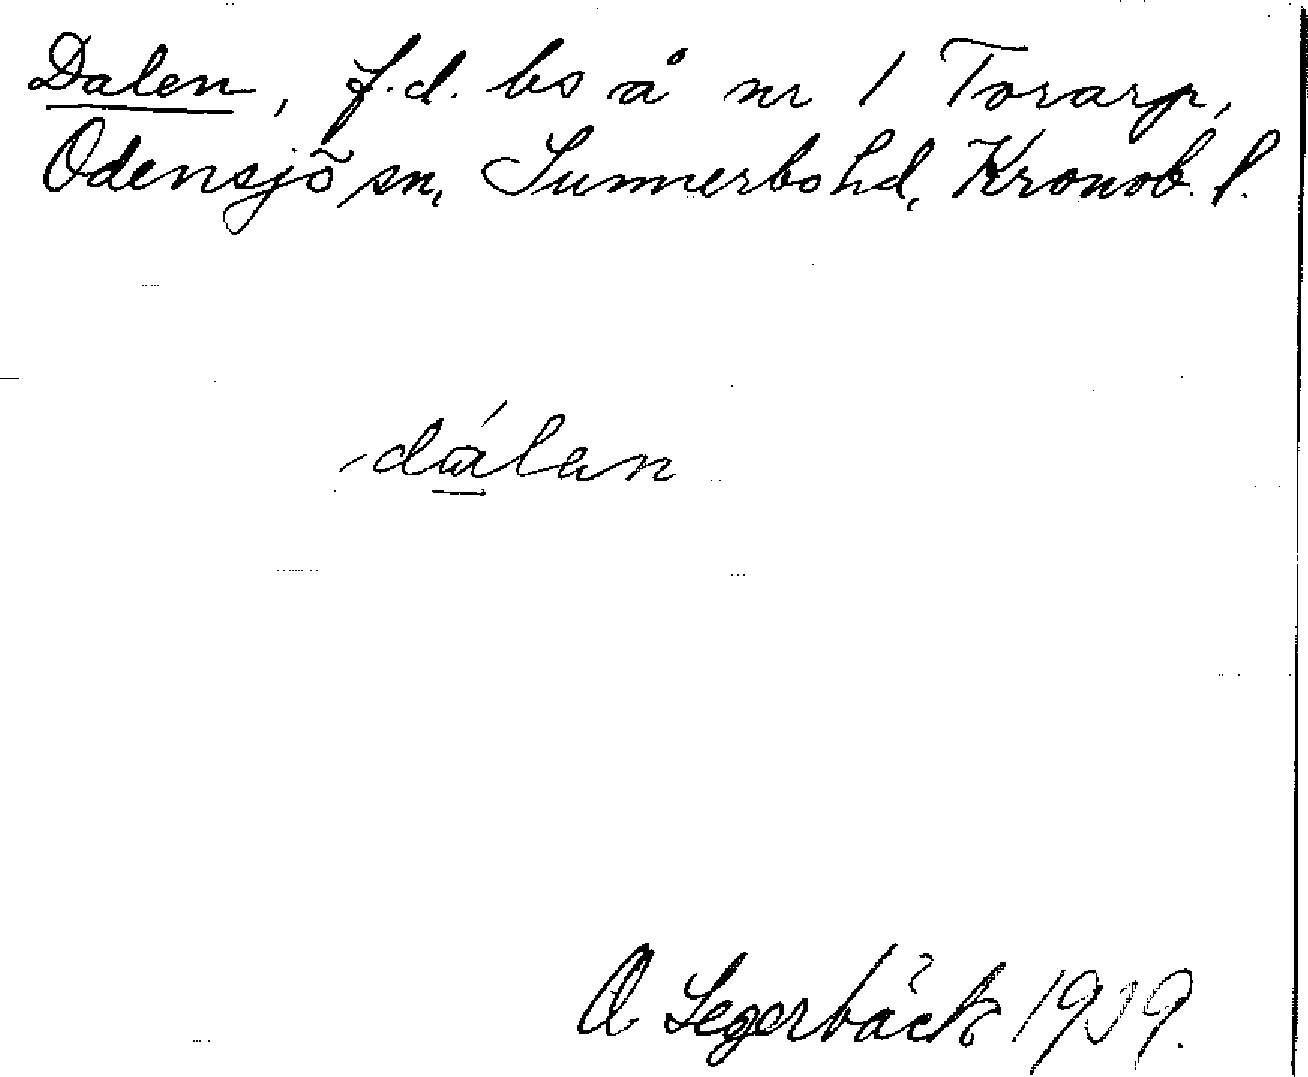 Dalen, f.d. bs å nr 1 Torarp,
Odensjö sn, Sunnerbo hd, Kronob. l.
dálan
A Segerbäck 1939.